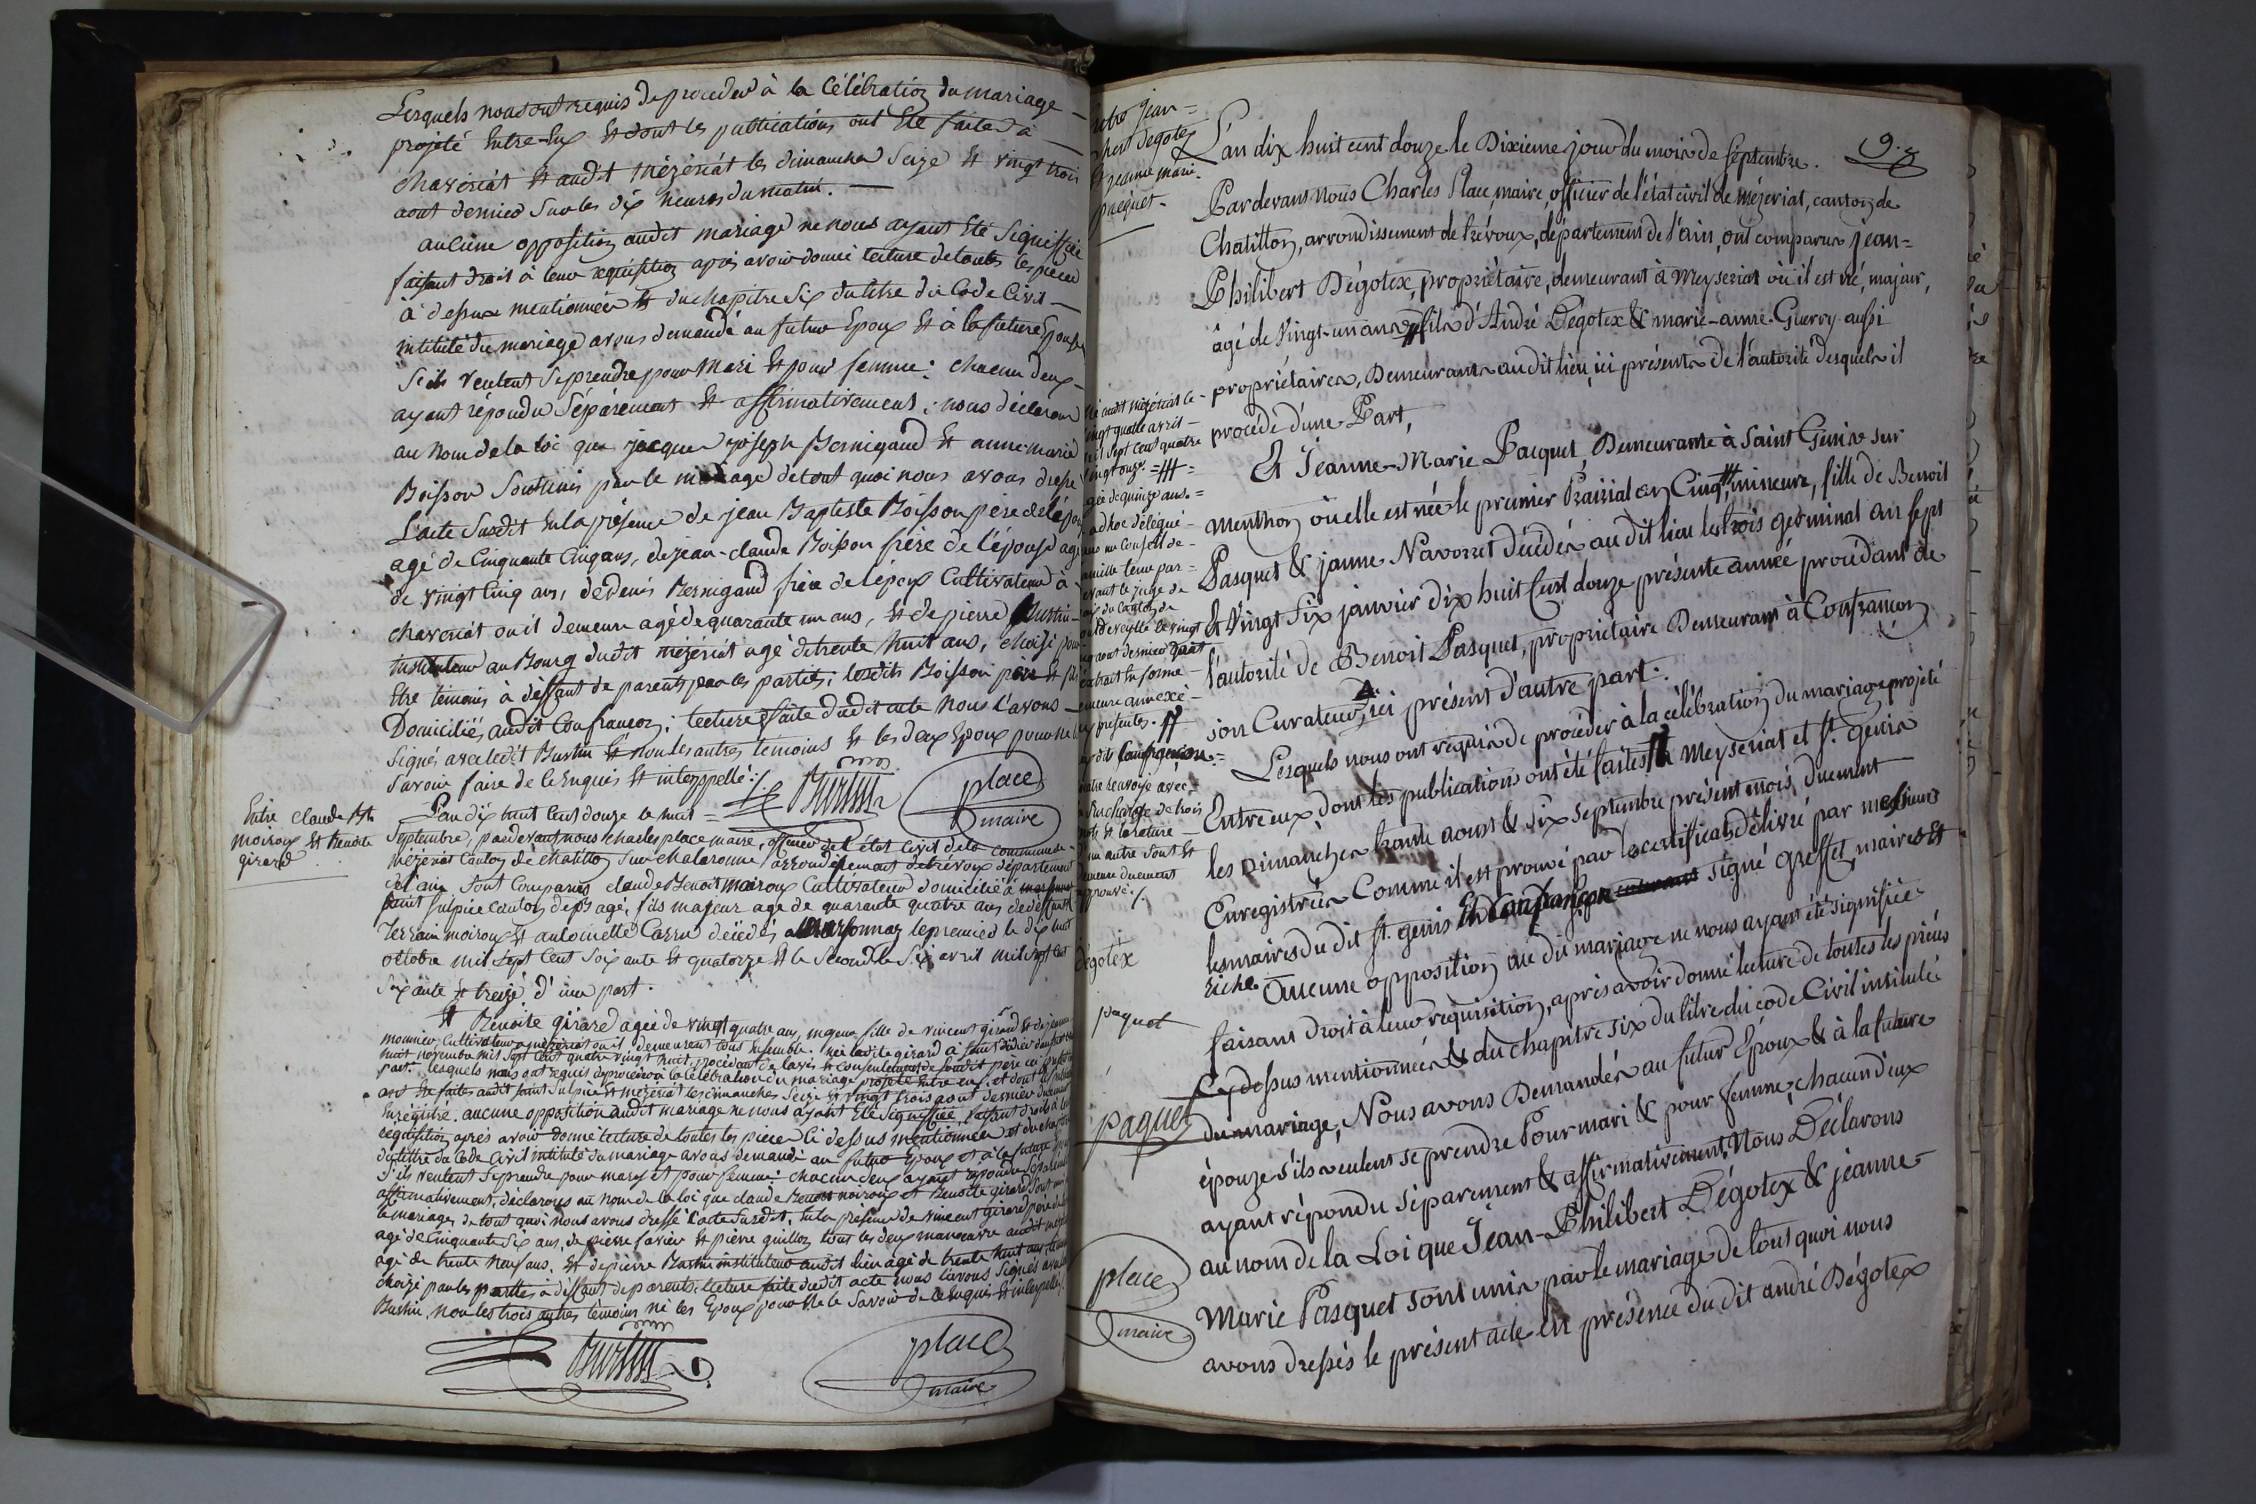 Lesquels nous ont requis de proceder à la Célébration du mariage
projeté Entre Eux Et dont les publications ont Eté faites à
chaveriat Et audit mézériat les dimanches Seize Et vingt trois
aout dernier Sur les dix heures du matin.
aucune opposition audit mariage ne nous ayant Eté Signiffiée
faisant droit à leur requisition après avoir donné lecture de toutes les pieces
à dessus mentionnées Et du chapitre Six du titre du Code Civil
intitulé du mariage avons demandé au futur Epoux Et à la future Epouse
S'ils veulent Se prendre pour Mari Et pour femme : chacun d'eux
ayant répondu Séparément Et affirmativement : nous déclarons
au Nom de la loi que jacques joseph Bernigaud Et anne marie
Boisson Sont unis par le mariage de tout quoi nous avons dressé
L'acte Susdit En la présence de jean Baptiste Boisson père de l'épouse
agé de Cinquante Cinq ans, de jean-claude Boisson frère de l'épouse agé
de vingt Cinq ans, de denis Bernigaud frère de l'époux Cultivateur à
chaveriat ou il demeure agé de quarante un ans, Et de pierre Burtin
instituteur au Bourg dudit mézériat agé de trente huit ans, choisi pour
Etre temoins à deffaut de parents par les parties; lesdits Boisson père Et fils
Domiciliés audit Confrancon; lecture faite dudit acte Nous L'avons
Signés avec ledit Burtin Et non les autres temoins Et les deux Epoux pour ne
Savoir faire de ce Enquis Et interpellé ./.
Burtin
place
maire
Entre claude Bt
moiroux Et Benoite
girard
L'an dix huit Cent douze le huit
Septembre, pardevant nous charles place maire, officier de l'état Civil de la commune
mézériat Canton de chatillon Sur chalaronne arrondissement de trévoux département
de l'ain Sont Comparus claude Benoit moiroux Cultivateur domicilié à
saint Sulpice Canton de agé, fils majeur agé de quarante quatre ans de deffunt
moiroux Et antoinette Carru décédés à marsonnaz le premier le dix huit
octobre mil Sept Cent Soixante Et quatorze Et la Seconde le Six avril mil Sept Cent
Soixante Et treize d'une part.
Et Benoite girard agée de vingt quatre ans, majeure fille de vincent girard Et de jeanne
monnier, Cultivateur a mézériat ou il demeurent tous Ensemble. née ladite girard à Saint didier
huit novembre mil Sept Cent quatre vingt huit, procédant de l'avis Et Consentement de Soudit père ici présent
part. lesquels nous ont requis de proceder à la Célébration du mariage projeté Entre eux, et dont les publications
ont Eté faites audit Saint Sulpice Et mézériat les dimanches Seize Et vingt trois aout dernier
Enregistré. aucune opposition audit mariage ne nous ayant Eté Signiffiée, faisant droit à leur
requisition après avoir donné lecture de toutes les pieces Ci dessus mentionnées et du chapitre
du titre du Code Civil intitulé du mariage avons demandé au futur Epoux et à la future
S'ils veulent Se prendre pour mary et pour femme : chacun deux ayant repondu Séparément
affirmativement, déclarons au nom de la loi que claude Benoit moiroux et Benoite girard Sont unis
le mariage, de tout quoi nous avons dressé l'acte Susdit, En la présence de vincent girard père de
agé de Cinquante Six ans, de pierre favier Et pierre guillon tous les deux manoeuvre audit
agé de trente Neuf ans. Et de pierre Burtin instituteur audit lieu agé de trente huit ans
choisi par les parties à deffaut de parents. lecture faite dudit acte nous l'avons Signés avec
Burtin. Non les trois autres temoins ni les Epoux pour Ne le Savoir de ce Enquis Et interpellé
Burtin
place
maire
9.
Entre jean
Philibert degotex
Et jeanne marie
paquet
L'an dix huit cent douze le Dixieme jour du mois de septembre.
Pardevant nous Charles Place, maire, officier de l'état civil de mézeriat, canton de
Chatillon, arrondissement de trévoux, département de l'ain, ont comparus jean=
Philibert Dégotex, propriétaire, demeurant à Meyseriat où il est né, majeur,
âgé de Vingt-un ans # fils d'André Dégotex & marie-anne Guerry aussi
propriétaires, Demeurants au dit lieu, ici présents de l'autorité desquels il
procède d'une Part,
Et Jeanne-Marie Pacquet, Demeurante à Saint Genis sur
menthon où elle est née le premier Prairial an Cinq # mineure, fille de Benoit
Pasquet & jeanne Navorret décédés au dit lieu les trois germinal an sept
& Vingt Six janvier dix huit Cent douze présente année procédant de
l'autorité de Benoit Pasquet, propriétaire Demeurant à Confrançon
son Curateur, ici présent d'autre part.
Lesquels nous ont requis de procéder à la célébration du mariage projeté
Entre eux, dont les publications ont été faites à Meyseriat et St. Genis
les Dimanches trente aout & six septembre présent mois, duement
Enregistrées Comme il est prouvé par le certificat délivré par messieurs
les maires du dit St. genis Et Confrançon signé Greffet, maire & Et
Riche. Aucune opposition au dit mariage ne nous ayant été signifiée
faisant droit à leur requisition, après avoir donné lecture de toutes les pièces
Cy dessus mentionnées & du chapitre six du titre du code Civil intitulé
du mariage, Nous avons Demandés au futur Époux & à la future
épouze s'ils veulent se prendre Pour mari & pour femme, chacun d'eux
ayant répondu séparement & affirmativement, Nous Déclarons
au nom de la Loi que Jean-Philibert Dégotex & jeanne
Marie Pasquet sont unis par le mariage de tout quoi nous
avons dressés le présent acte en présence du dit andré Dégotex
né audit mézériat le
vingt quatre avril
mil sept cent quatre
vingt onze. =#=
agée de quinze ans.=
ad hoc délégué
dans un Conseil de
famille tenu par
devant le juge de
paix du canton de
pont de veyle le vingt
aout dernier dont
extrait En forme
demeure annexé
aux présentes. #
audit Confrançon.=
notre renvoyé avec
surcharge de trois
mots Et la rature
d'un autre Sont Et
demeure duement
approuvé ./.
Dégotex
paquet
paquet
place
maire